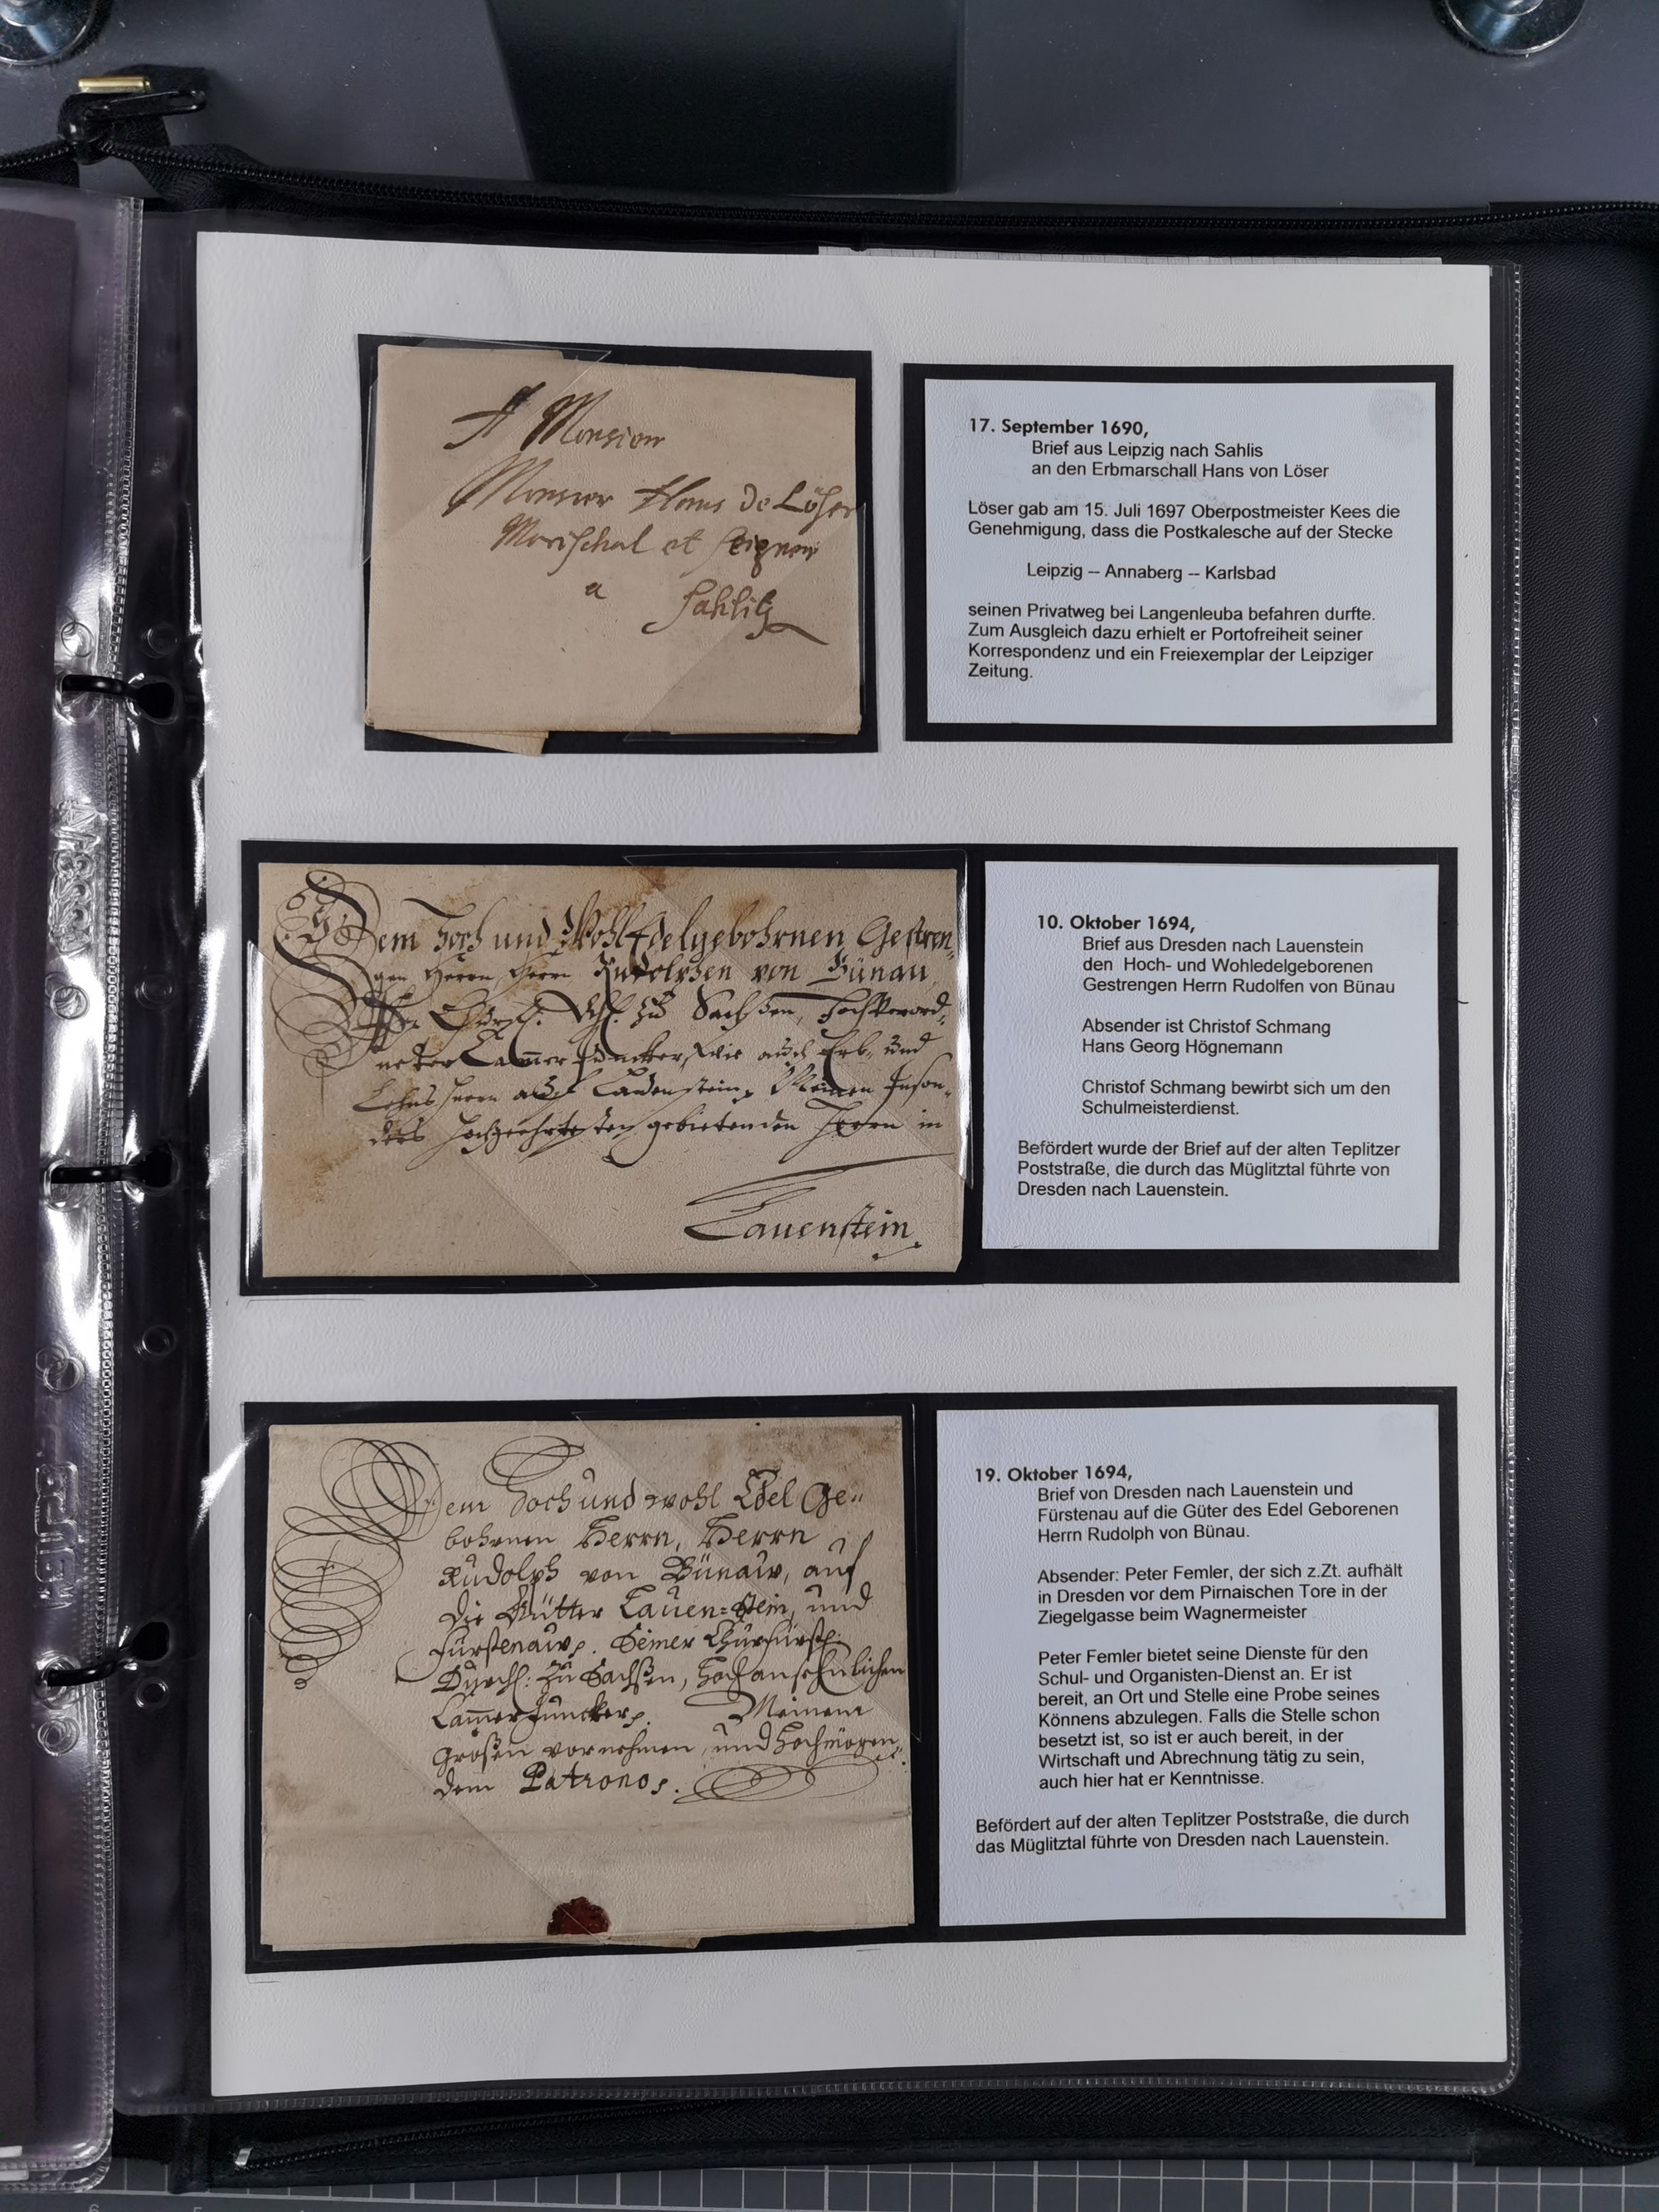 A Monsieur
Monsieur Hans de Löser
Marischal et Seigneur
a Sahlis
17. September 1690,
Brief aus Leipzig nach Sahlis
an den Erbmarschall Hans von Löser
Löser gab am 15. Juli 1697 Oberpostmeister Kees die
Genehmigung, dass die Postkalesche auf der Stecke
Leipzig -- Annaberg -- Karlsbad
seinen Privatweg bei Langenleuba befahren durfte.
Zum Ausgleich dazu erhielt er Portofreiheit seiner
Korrespondenz und ein Freiexemplar der Leipziger
Zeitung.
Dem Hoch und WohlEdelgebohrnen Gestren-
gen Herrn Herrn Rudolphen von Bünau
zu Sachßen, Hochverord-
neter Cammer Juncker, wie auch Erb- und
Lehns Herrn auf Lauenstein, Meinen Inson-
ders Hochgeehrtesten gebietenden Herrn in
Lauenstein
10. Oktober 1694,
Brief aus Dresden nach Lauenstein
den Hoch- und Wohledelgeborenen
Gestrengen Herrn Rudolfen von Bünau
Absender ist Christof Schmang
Hans Georg Högnemann
Christof Schmang bewirbt sich um den
Schulmeisterdienst.
Befördert wurde der Brief auf der alten Teplitzer
Poststraße, die durch das Müglitztal führte von
Dresden nach Lauenstein.
Dem Hoch und wohl Edel Ge-
bohrnen Herrn, Herrn
Rudolph von Bünaw, auf
die Gütter Lauen-Stein, und
Fürstenaw. Seiner Churfürstl.
Durchl: zu Sachßen, Hochansehnlichen
Cammer Juncker. Meinem
Großen vornehmen, und Hochmögen-
dem Patrono.
19. Oktober 1694,
Brief von Dresden nach Lauenstein und
Fürstenau auf die Güter des Edel Geborenen
Herrn Rudolph von Bünau.
Absender: Peter Femler, der sich z.Zt. aufhält
in Dresden vor dem Pirnaischen Tore in der
Ziegelgasse beim Wagnermeister
Peter Femler bietet seine Dienste für den
Schul- und Organisten-Dienst an. Er ist
bereit, an Ort und Stelle eine Probe seines
Könnens abzulegen. Falls die Stelle schon
besetzt ist, so ist er auch bereit, in der
Wirtschaft und Abrechnung tätig zu sein,
auch hier hat er Kenntnisse.
Befördert auf der alten Teplitzer Poststraße, die durch
das Müglitztal führte von Dresden nach Lauenstein.